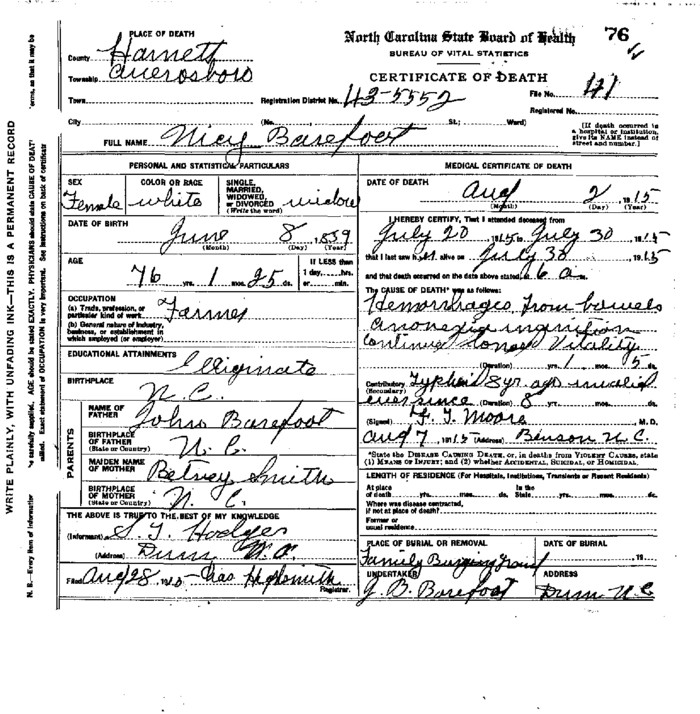 North Carolina State Board of Health 76
BUREAU OF VITAL STATISTICS
CERTIFICATE OF DEATH
PLACE OF DEATH
County Harnett
Township Averosboro
Town
Registration District No. 43-5552
File No. 171
Registered No.
City (No. St.; Ward)
[If death occurred in a hospital or institution, give its NAME instead of street and number.]
FULL NAME May Barefoot
PERSONAL AND STATISTICAL PARTICULARS
SEX Female
COLOR OR RACE white
SINGLE, MARRIED, WIDOWED, or DIVORCED (Write the word) widow
DATE OF BIRTH June 8, 1839
(Month) (Day) (Year)
AGE 76 yrs. 1 mos. 25 ds.
If LESS than 1 day, hrs. or min.
OCCUPATION
(a) Trade, profession, or particular kind of work Farmer
(b) General nature of industry, business, or establishment in which employed (or employer)
EDUCATIONAL ATTAINMENTS Illiginate
BIRTHPLACE N.C.
PARENTS
NAME OF FATHER John Barefoot
BIRTHPLACE OF FATHER (State or Country) N. C.
MAIDEN NAME OF MOTHER Betsey Smith
BIRTHPLACE OF MOTHER (State or Country) N. C.
THE ABOVE IS TRUE TO THE BEST OF MY KNOWLEDGE
(Informant) S. T. Hodges
(Address) Dunn N.C.
Filed Aug 28, 1915 Chas Highsmith
Registrar.
MEDICAL CERTIFICATE OF DEATH
DATE OF DEATH Aug 2, 1915
(Month) (Day) (Year)
I HEREBY CERTIFY, That I attended deceased from
July 20 1915 to July 30, 1915
that I last saw her alive on July 30, 1915
and that death occurred on the date above stated, at 6 a.
The CAUSE OF DEATH* was as follows:
Hemorrhages from bowels
Vitality
(Duration) yrs. 1 mos. 5 ds.
Contributory Typhoid 8 yr. ago invalid
(Secondary) ever since (Duration) 8 yr. mos. ds.
(Signed) F. T. Moore, M. D.
Aug 7, 1915 (Address) Benson N.C.
*State the DISEASE CAUSING DEATH, or, in deaths from VIOLENT CAUSES, state (1) MEANS OF INJURY; and (2) whether ACCIDENTAL, SUICIDAL, OR HOMICIDAL.
LENGTH OF RESIDENCE (For Hospitals, Institutions, Transients or Recent Residents)
At place of death yrs. mos. ds. In the State yrs. mos. ds.
Where was disease contracted, if not at place of death?
Former or usual residence
PLACE OF BURIAL OR REMOVAL Family Burying Ground
DATE OF BURIAL , 19
UNDERTAKER J. B. Barefoot
ADDRESS Dunn N.C.
WRITE PLAINLY, WITH UNFADING INK—THIS IS A PERMANENT RECORD
N. B.—Every item of information
carefully supplied. AGE should be stated EXACTLY. PHYSICIANS should state CAUSE OF DEATH
terms, so that it may be
Exact statement of OCCUPATION is very important. See instructions on back of certificate